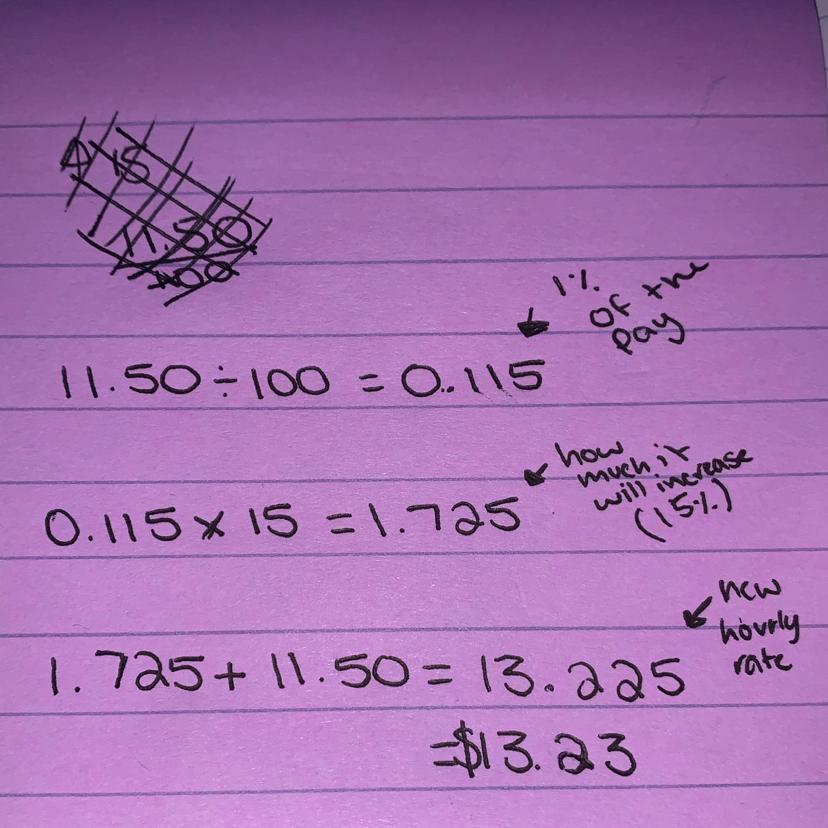 11.50
100
1%
of the
pay
11.50 ÷ 100 = 0.115
how
much it
will increase
(15%)
0.115 x 15 = 1.725
new
hourly
rate
1.725 + 11.50 = 13.225
=$13.23